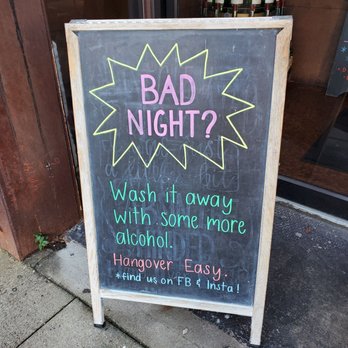 BAD
NIGHT?
Wash it away
with some more
alcohol.
Hangover Easy.
*find us on FB & Insta!